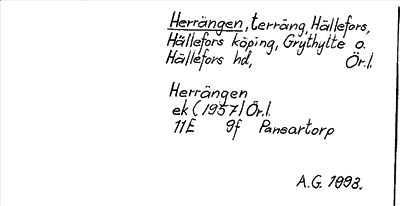 Herrängen, terräng, Hällefors,
Hällefors köping, Grythytte o.
Hällefors hd, Ör.l.
Herrängen
ek (1957) Ör.l.
11E 9f Pansartorp
A.G. 1993.